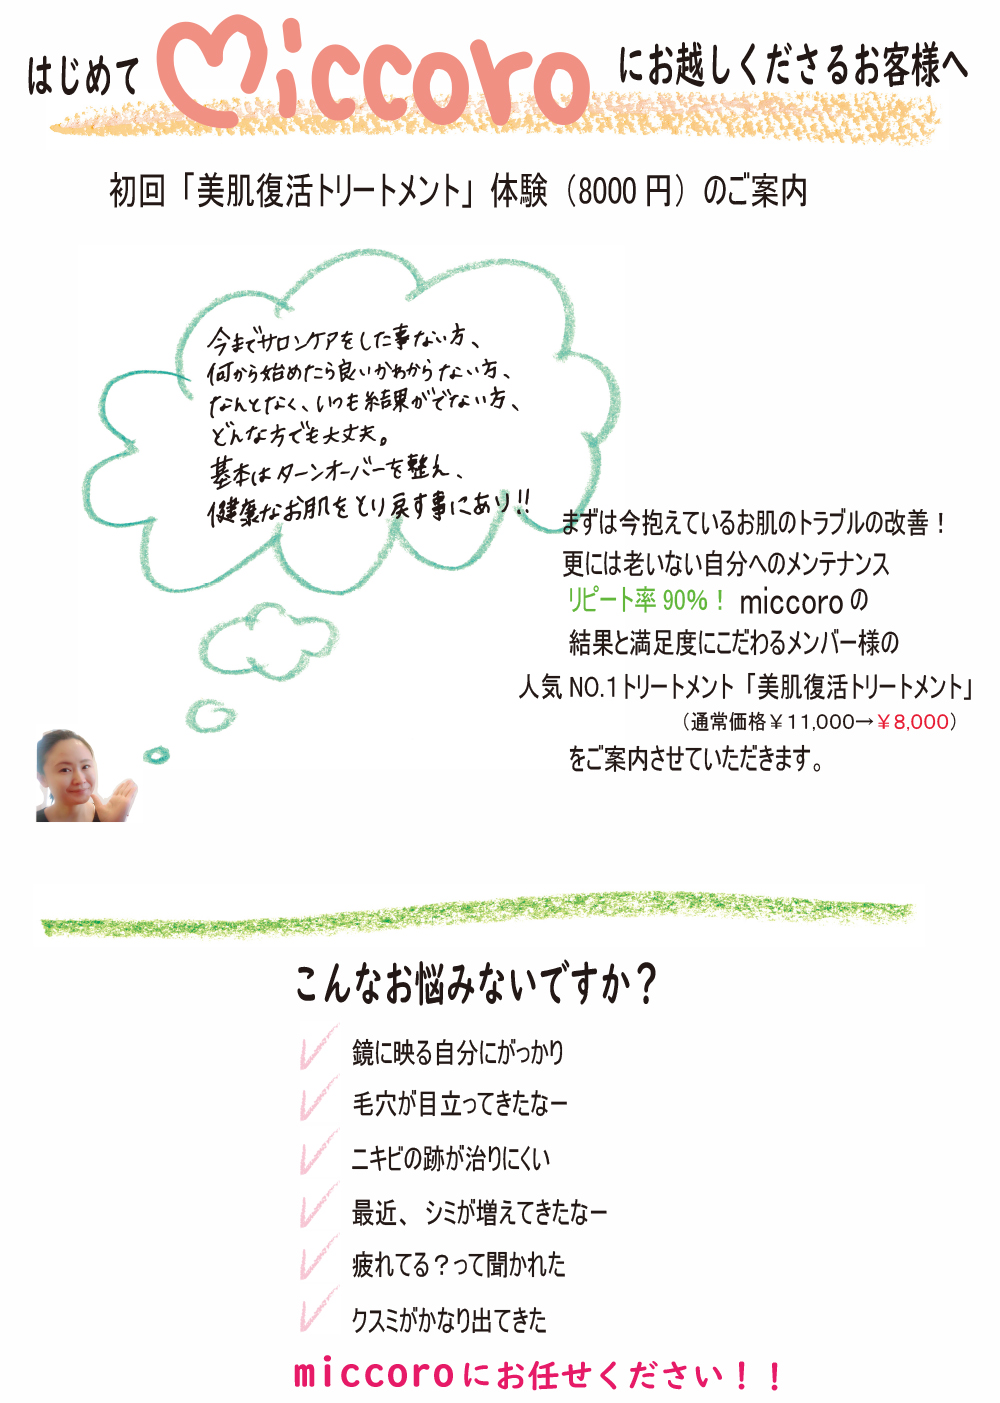 はじめて miccoro にお越しくださるお客様へ
初回「美肌復活トリートメント」体験（8000 円）のご案内
今までサロンケアをした事ない方、
何から始めたら良いかわからない方、
なんとなく、いつも結果がでない方、
どんな方でも大丈夫。
基本はターンオーバーを整え、
健康なお肌をとり戻す事にあり!!
まずは今抱えているお肌のトラブルの改善！
更には老いない自分へのメンテナンス
リピート率 90％！ miccoro の
結果と満足度にこだわるメンバー様の
人気 NO.1トリートメント「美肌復活トリートメント」
（通常価格￥11,000→￥8,000）
をご案内させていただきます。
こんなお悩みないですか？
鏡に映る自分にがっかり
毛穴が目立ってきたなー
ニキビの跡が治りにくい
最近、シミが増えてきたなー
疲れてる？って聞かれた
クスミがかなり出てきた
miccoroにお任せください！！